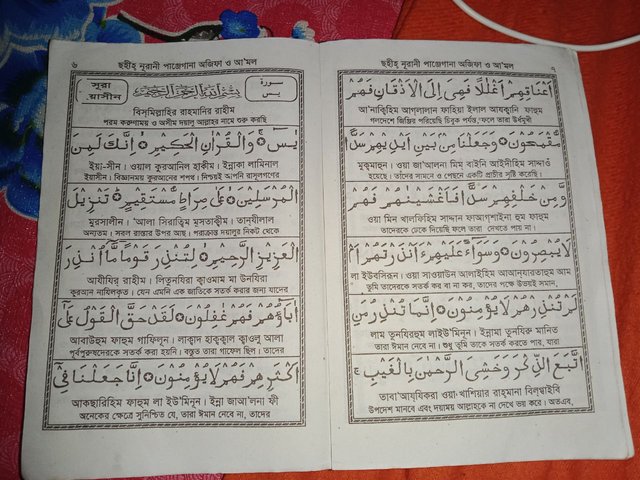 ৬ ছহীহ্ নূরানী পাঞ্জেগানা অজিফা ও আ'মল
সূরা
ইয়াসীন
بِسْمِ اللّٰهِ الرَّحْمٰنِ الرَّحِيْمِ
سورة
يس
বিস্‌মিল্লাহির রাহমানির রাহীম
পরম করুণাময় ও অসীম দয়ালু আল্লাহর নামে শুরু করছি
يٰسٓ ۚ وَالْقُرْاٰنِ الْحَكِيْمِ ۙ اِنَّكَ لَمِنَ
ইয়া-সীন। ওয়াল কুরআনিল হাকীম। ইন্নাকা লামিনাল
ইয়াসীন। বিজ্ঞানময় কুরআনের শপথ। নিশ্চয়ই আপনি রাসূলগণের
الْمُرْسَلِيْنَ ۙ عَلٰى صِرَاطٍ مُّسْتَقِيْمٍ ؕ تَنْزِيْلَ
মুরসালীন। 'আলা সিরাত্বিম মুসতাক্বীম। তান্‌যীলাল
অন্যতম। সরল রাস্তার উপর আছ। পরাক্রান্ত দয়ালুর নিকট থেকে
الْعَزِيْزِ الرَّحِيْمِ ۙ لِتُنْذِرَ قَوْمًا مَّاۤ اُنْذِرَ
আযীযির্ রাহীম। লিতুনযিরা ক্বাওমাম মা উনযিরা
কুরআন নাযিলকৃত। যেন এমনি এক জাতিকে সতর্ক করার জন্য যাদের
اٰبَآؤُهُمْ فَهُمْ غٰفِلُوْنَ لَقَدْ حَقَّ الْقَوْلُ عَلٰۤى
আবাউহুম ফাহুম গাফিলূন। লাক্বাদ হাক্ব্ক্বাল ক্বাওলু আলা
পূর্বপুরুষদেরকে সতর্ক করা হয়নি। বস্তুত তারা গাফেল ছিল। তাদের
اَكْثَرِهِمْ فَهُمْ لَا يُؤْمِنُوْنَ اِنَّا جَعَلْنَا فِيْۤ
আকছারিহিম ফাহুম লা ইউ'মিনূন। ইন্না জা'আলনা ফী
অনেকের ক্ষেত্রে সুনিশ্চিত যে, তারা ঈমান নেবে না, তাদের
ছহীহ্ নূরানী পাঞ্জেগানা অজিফা ও আ'মল ৭
اَعْنَاقِهِمْ اَغْلٰلًا فَهِيَ اِلَى الْاَذْقَانِ فَهُمْ
আ'নাক্বিহিম আগ্‌লালান ফাহিয়া ইলাল আযক্বানি ফাহুম
গলদেশে জিঞ্জির পরিয়েছি চিবুক পর্যন্ত, ফলে তারা উর্ধ্বমুখী
مُّقْمَحُوْنَ وَجَعَلْنَا مِنْۢ بَيْنِ اَيْدِيْهِمْ سَدًّا
মুক্বমাহূন। ওয়া জা'আলনা মিম্ বাইনি আইদীহিম সাদ্দাওঁ
হয়েছে। তাঁদের সামনে ও পেছনে একটি প্রাচীর সৃষ্টি করেছি।
وَّمِنْ خَلْفِهِمْ سَدًّا فَاَغْشَيْنٰهُمْ فَهُمْ
ওয়া মিন খালফিহিম সাদ্দান ফাআগ্‌শাইনা হুম ফাহুম
তাদেরকে ঢেকে দিয়েছি ফলে তারা দেখতে পায় না।
لَا يُبْصِرُوْنَ وَسَوَآءٌ عَلَيْهِمْ ءَاَنْذَرْتَهُمْ اَمْ
লা ইউবসিরূন। ওয়া সাওয়াউন আলাইহিম আআনযারতাহুম আম
তুমি তাদেরকে সতর্ক কর বা না কর, তাদের পক্ষে উভয়ই সমান,
لَمْ تُنْذِرْهُمْ لَا يُؤْمِنُوْنَ اِنَّمَا تُنْذِرُ مَنِ
লাম তুনযিরহুম লাইউ'মিনূন। ইন্নামা তুনযিরু মানিত
তারা ঈমান নেবে না। শুধু তুমি তাকে সতর্ক করতে পার, যারা
اتَّبَعَ الذِّكْرَ وَخَشِيَ الرَّحْمٰنَ بِالْغَيْبِ ۚ
তাবা'আয্‌যিকরা ওয়া খাশিয়ার রাহমানা বিলগ্বাইবি
উপদেশ মানবে এবং দয়াময় আল্লাহকে না দেখে ভয় করে। অতএব,